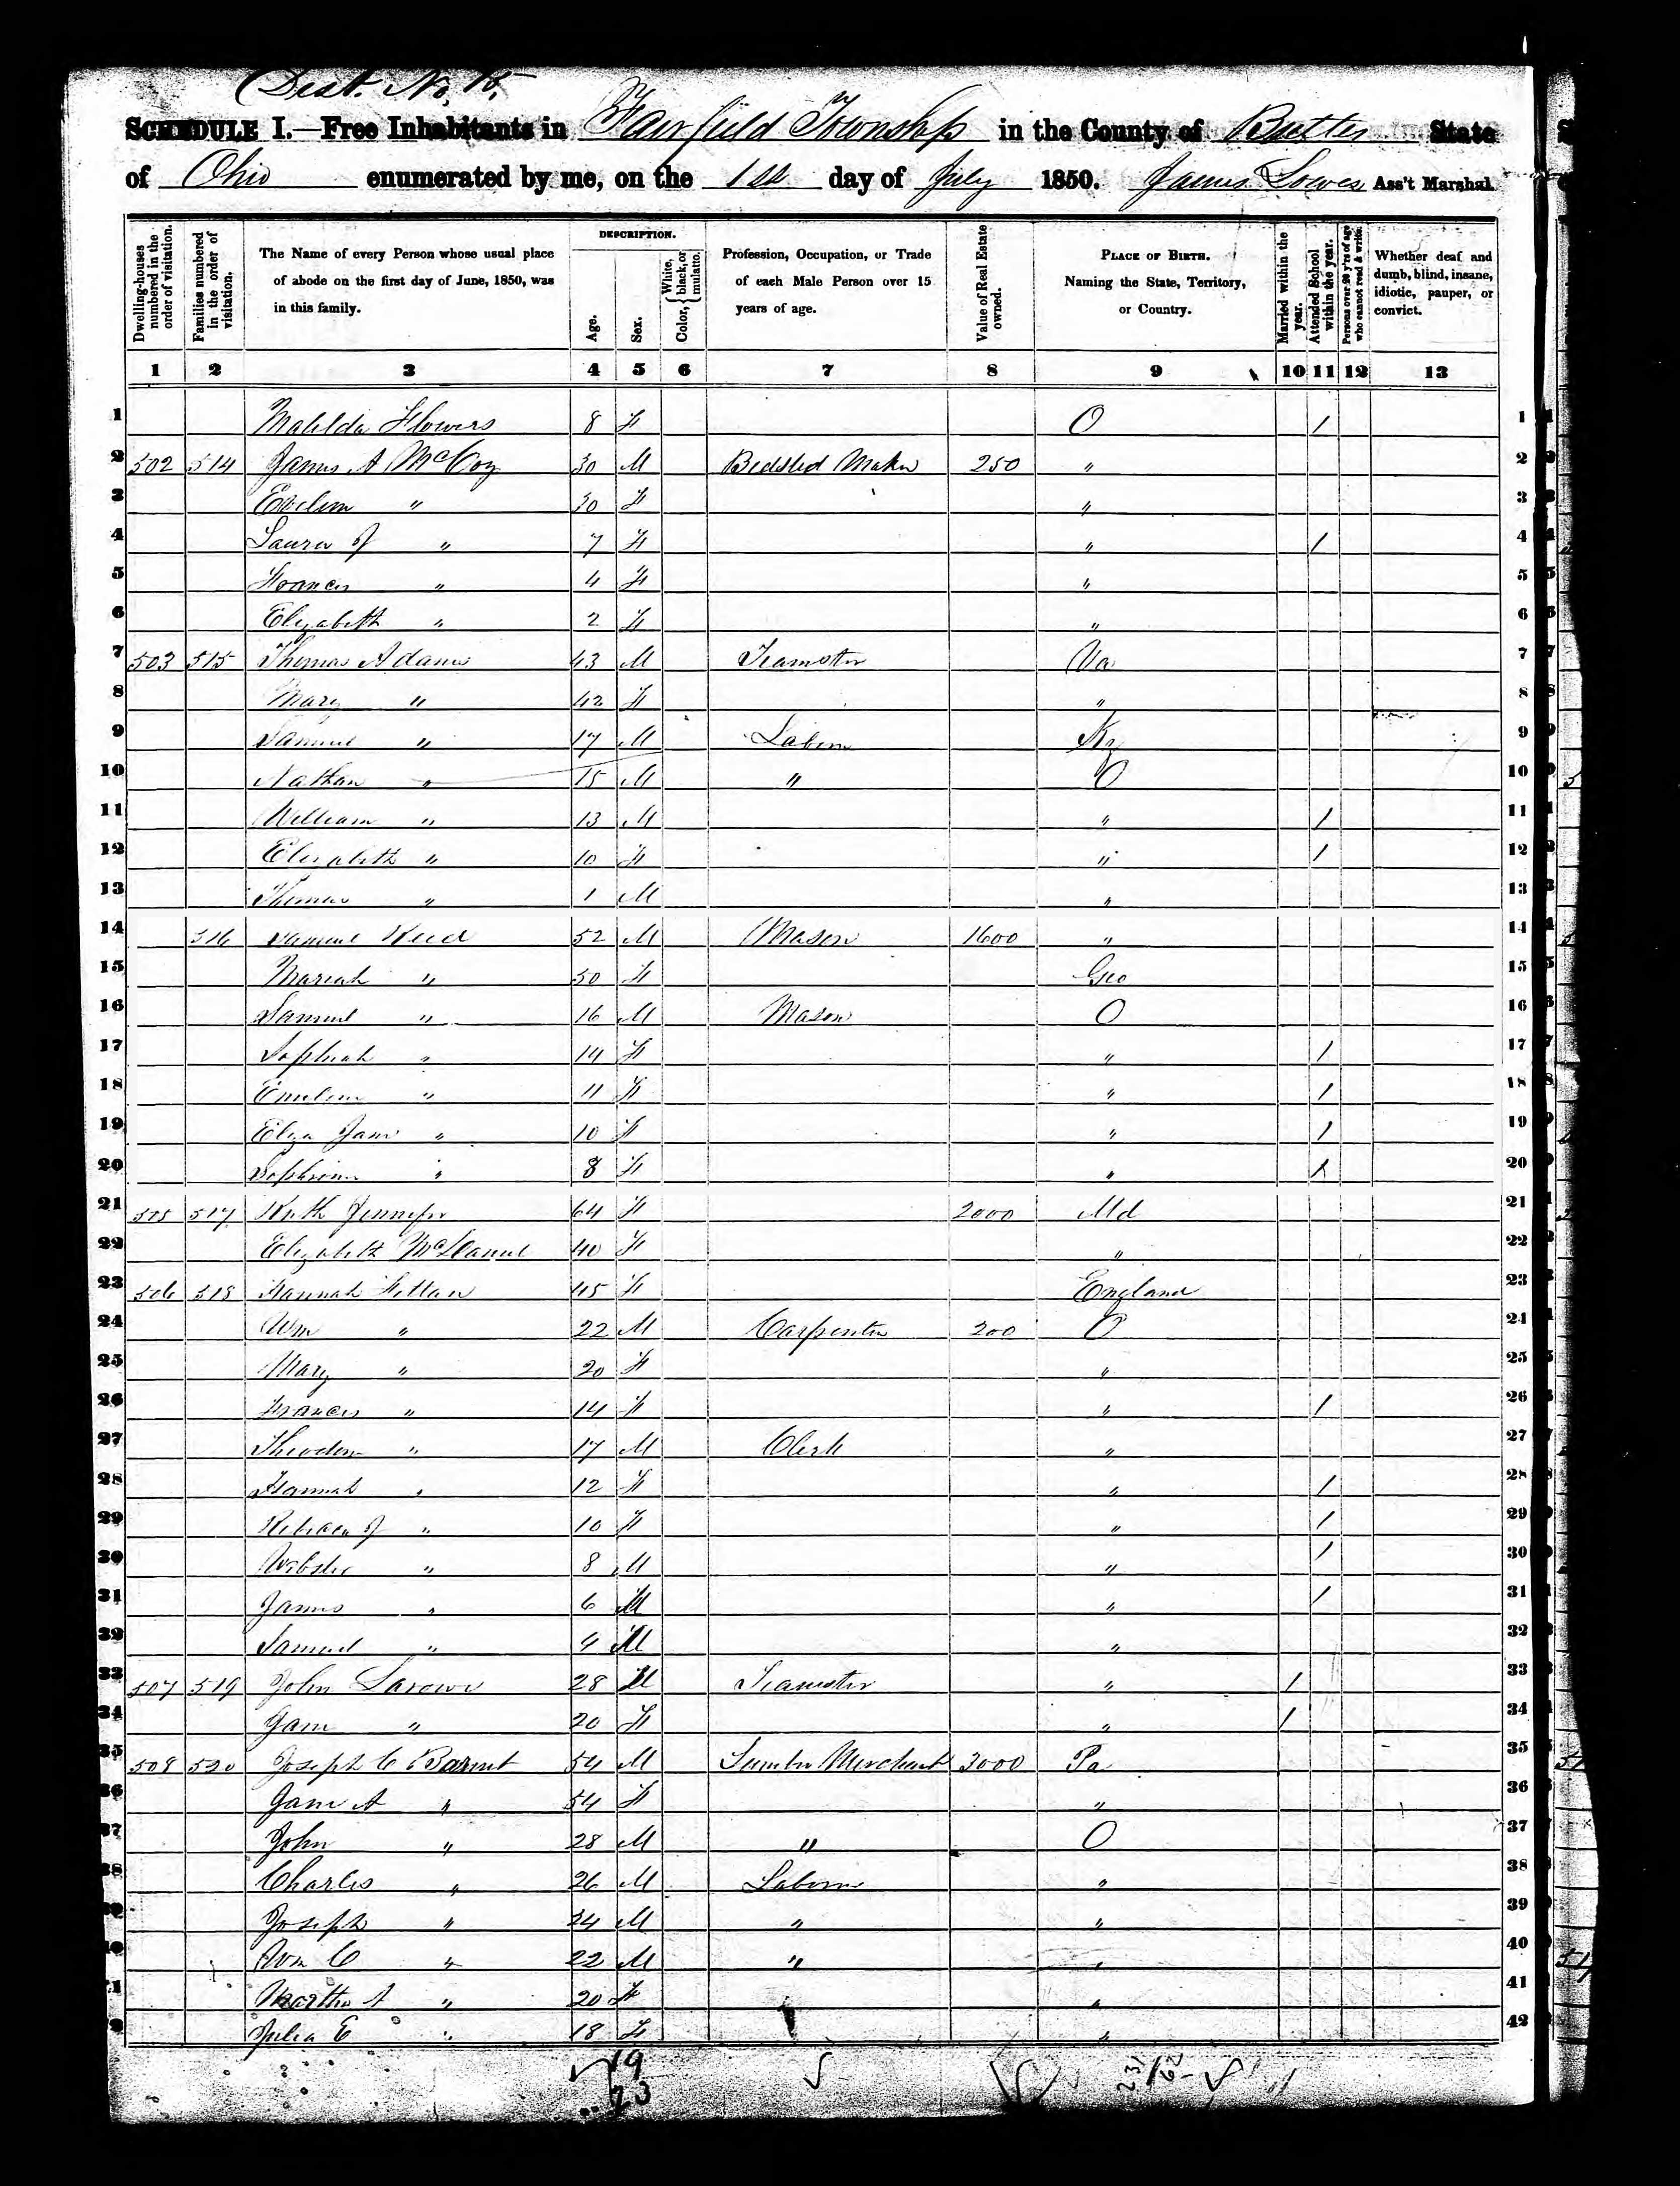 Dist. No. 15.
SCHEDULE I.—Free Inhabitants in Fairfield Township in the County of Butler State
of Ohio enumerated by me, on the 1st day of July 1850. James Lowes Ass't Marshal.
Dwelling-houses numbered in the order of visitation.
Families numbered in the order of visitation.
The Name of every Person whose usual place of abode on the first day of June, 1850, was in this family.
DESCRIPTION.
Age.
Sex.
Color, { White, black, or mulatto.
Profession, Occupation, or Trade of each Male Person over 15 years of age.
Value of Real Estate owned.
PLACE OF BIRTH. Naming the State, Territory, or Country.
Married within the year.
Attended School within the year.
Persons over 20 y'rs of age who cannot read & write.
Whether deaf and dumb, blind, insane, idiotic, pauper, or convict.
1 2 3 4 5 6 7 8 9 10 11 12 13
1 Matilda Flowers 8 F O / 1
2 502 514 James A McCoy 30 M Bedsted Maker 250 " 2
3 Evelin " 30 F " 3
4 Laura J " 7 F " / 4
5 Frances " 4 F " 5
6 Elizabeth " 2 F " 6
7 503 515 Thomas Adams 43 M Teamster Va 7
8 Mary " 42 F " 8
9 Samuel " 17 M Labor Ky 9
10 Nathan " 15 M " O 10
11 William " 13 M " / 11
12 Elizabeth " 10 F " / 12
13 Thomas " 1 M " 13
14 516 Samuel Reed 52 M Mason 1600 " 14
15 Mariah " 50 F Geo 15
16 Samuel " 16 M Mason O 16
17 Sophiah " 14 F " / 17
18 Emeline " 11 F " / 18
19 Eliza Jane " 10 F " / 19
20 " 8 F " / 20
21 505 517 Ruth Jennifer 64 F 2000 Md 21
22 Elizabeth McDanul 40 F " 22
23 506 518 Hannah 45 F England 23
24 Wm " 22 M Carpenter 200 O 24
25 Mary " 20 F " 25
26 Frances " 14 F " / 26
27 Theodore " 17 M Clerk " 27
28 Hannah " 12 F " / 28
29 Rebecca J " 10 F " / 29
30 Webster " 8 M " / 30
31 James " 6 M " / 31
32 Samuel " 4 M " 32
33 507 519 John Larowe 28 M Teamster " / 33
34 Jane " 20 F " / 34
35 508 520 Joseph C Barnet 54 M Lumber Merchant 3000 Pa 35
36 Jane A " 54 F " 36
37 John " 28 M " O 37
38 Charles " 26 M Laborer " 38
39 Joseph " 24 M " " 39
40 Wm C " 22 M " " 40
41 Martha A " 20 F " 41
42 Julia E " 18 F " 42
19
23